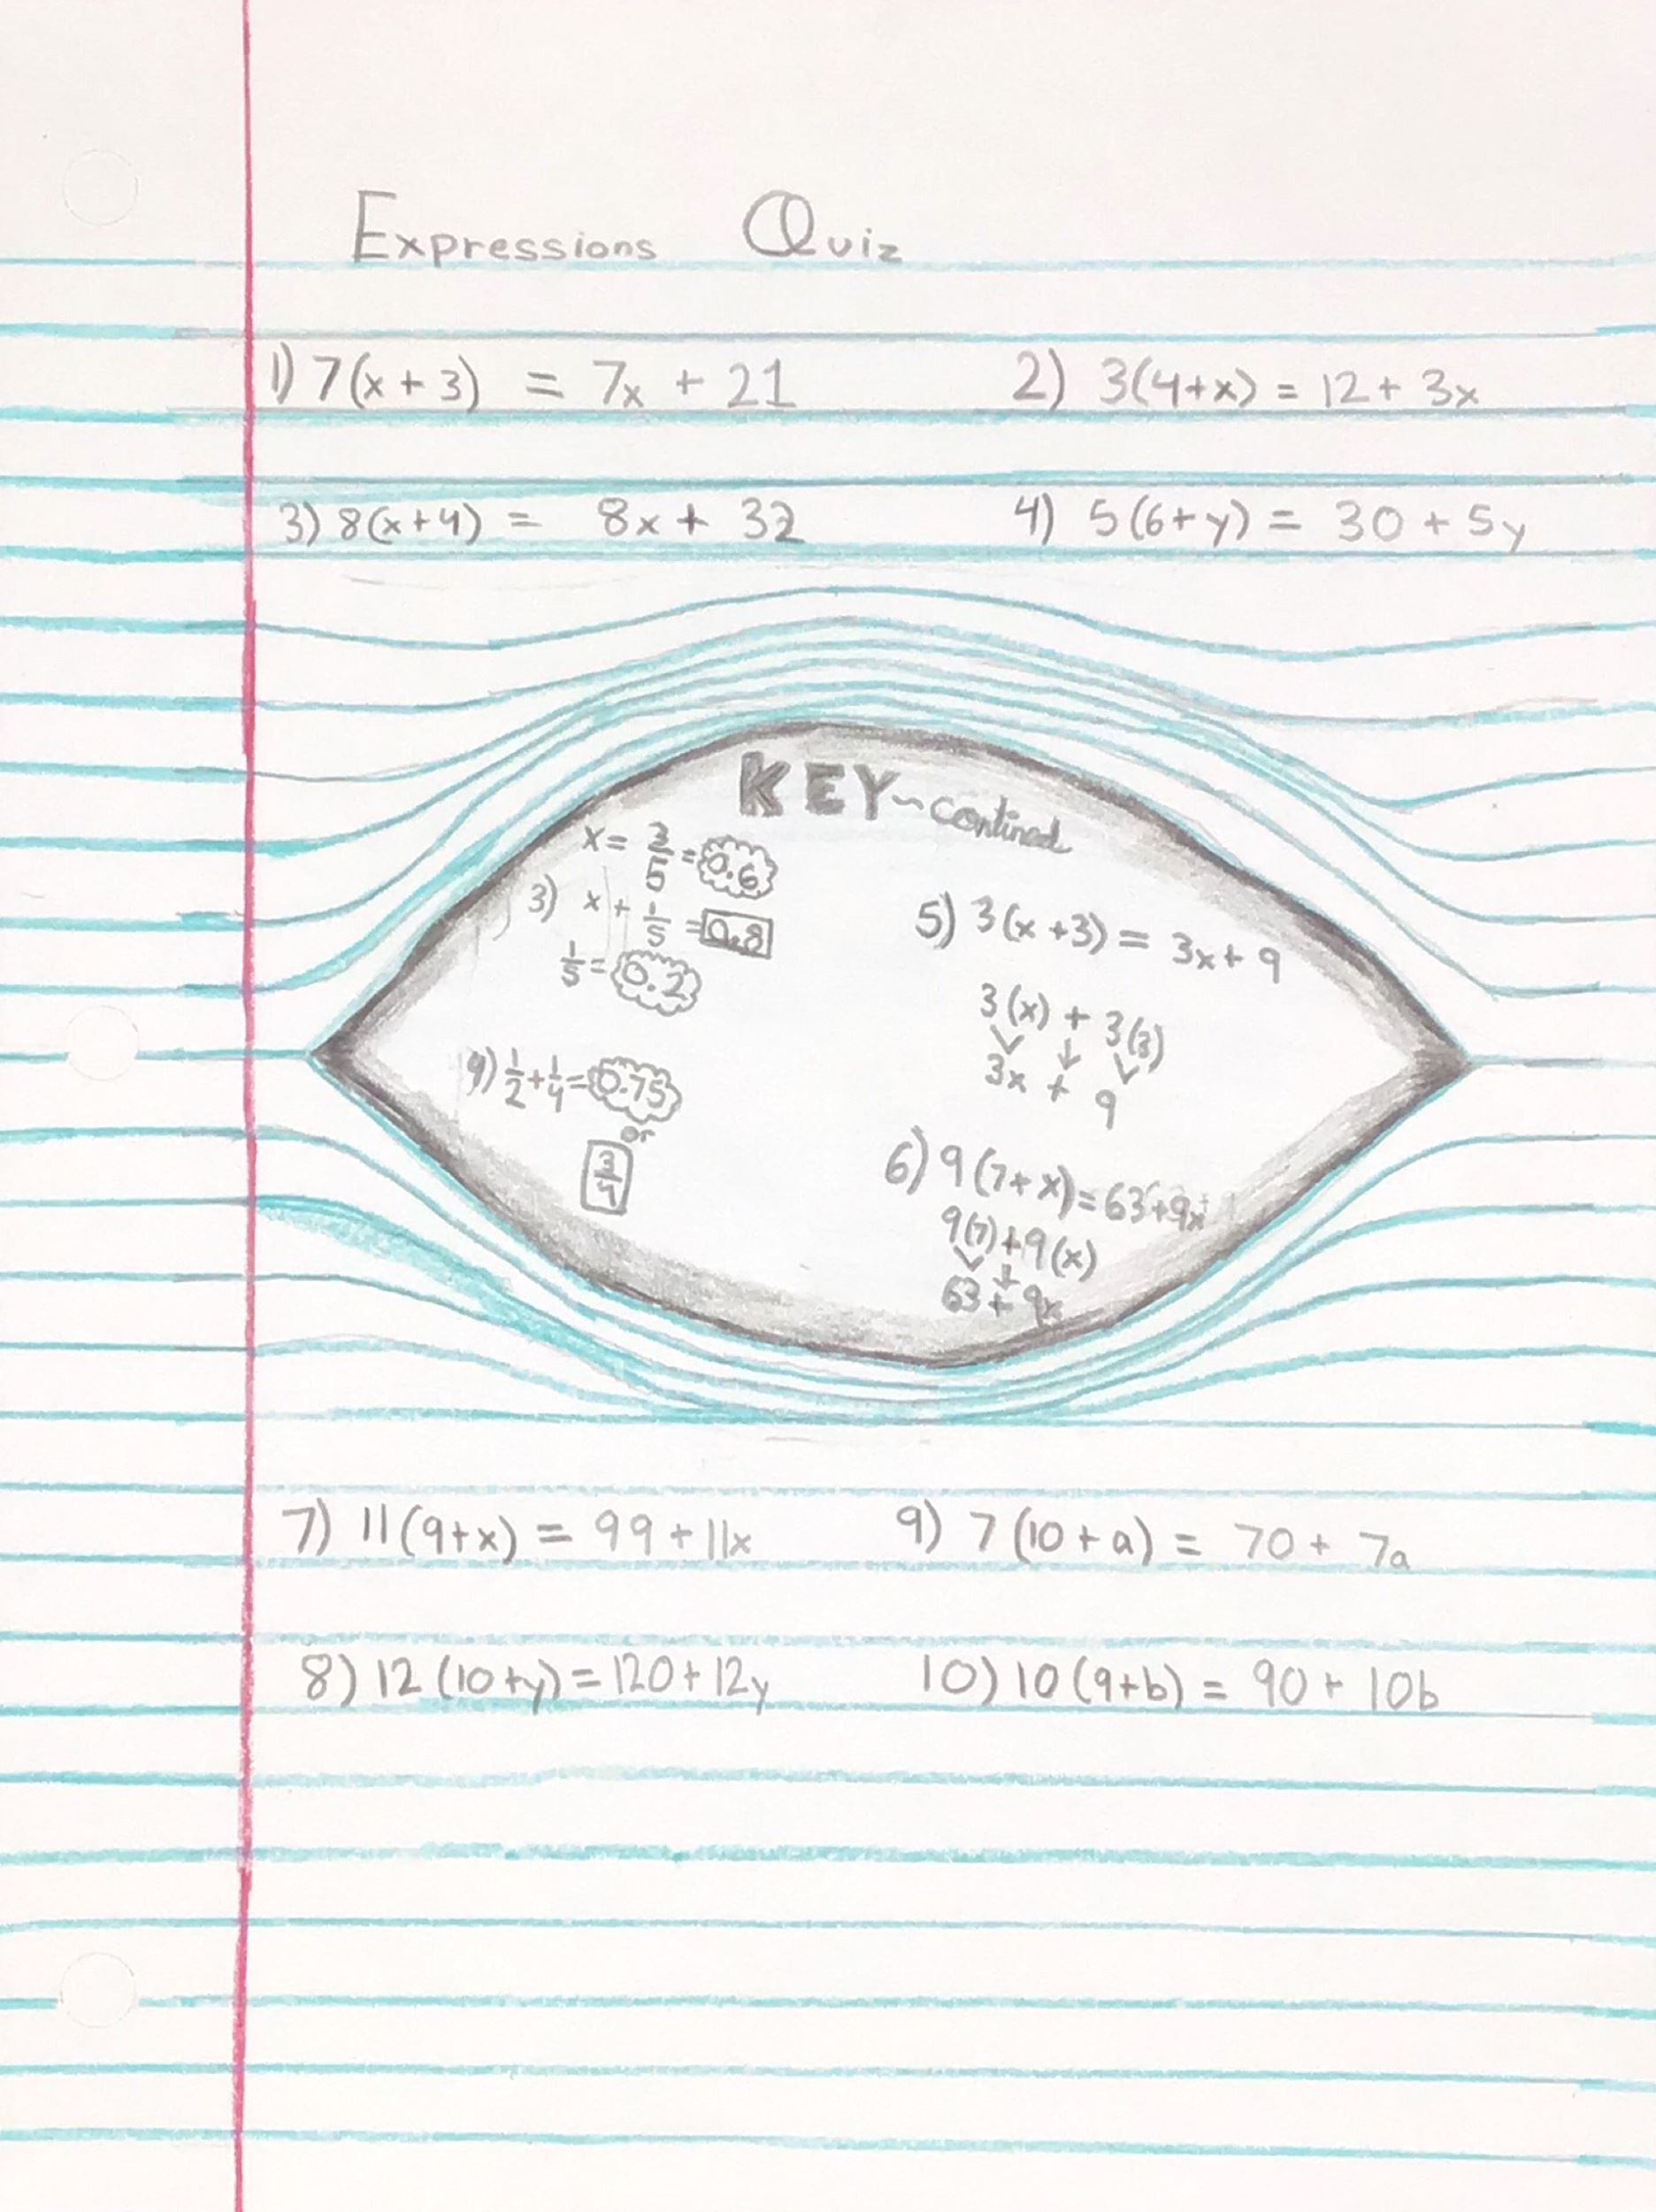 Expressions Quiz
1) 7(x + 3) = 7x + 21
2) 3(4+x) = 12 + 3x
3) 8(x+4) = 8x + 32
4) 5(6+y) = 30 + 5y
KEY~contined
x = 3/5 = 0.6
3) x + 1/5 = 0.8
1/5 = 0.2
4) 1/2 + 1/4 = 0.75
or
3/4
5) 3(x+3) = 3x + 9
3(x) + 3(3)
3x + 9
6) 9(7+x) = 63+9x
9(7)+9(x)
63 + 9x
7) 11(9+x) = 99 + 11x
9) 7(10+a) = 70 + 7a
8) 12(10+y) = 120+12y
10) 10(9+b) = 90 + 10b